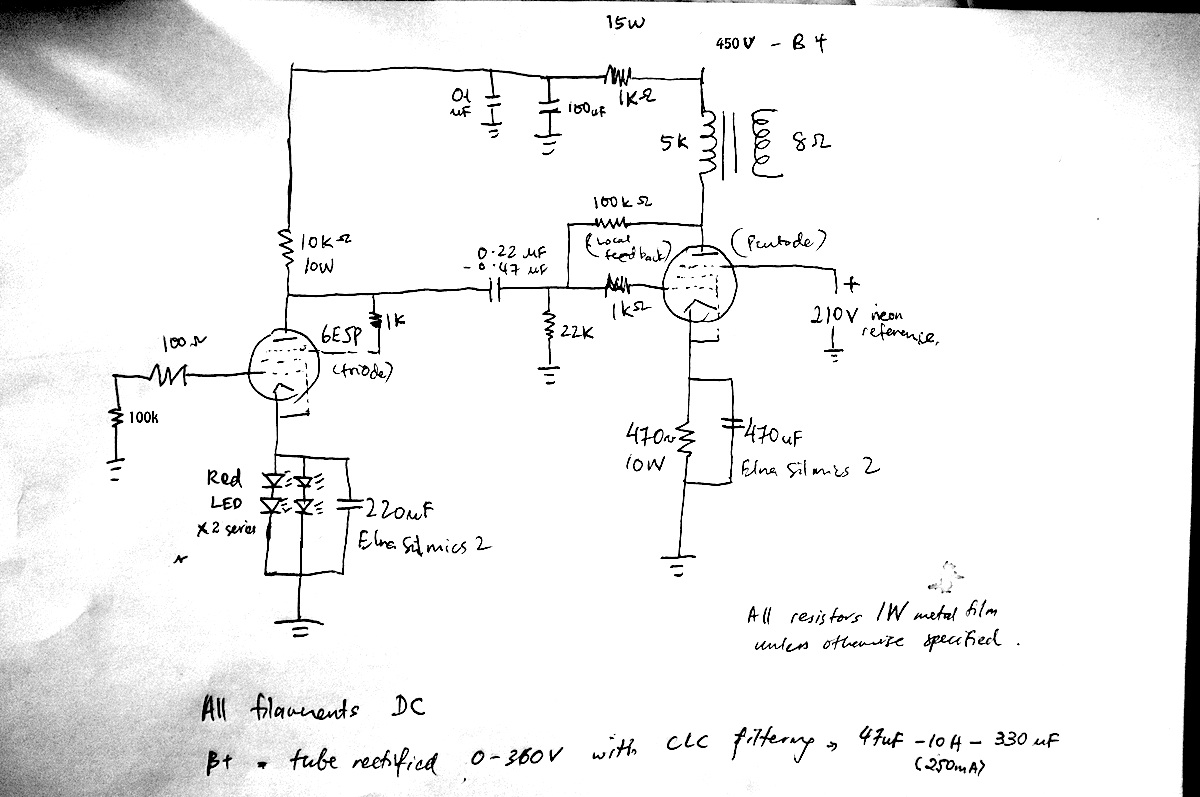 15W
450V - B+
01
uF
100uF
1KΩ
5K
8Ω
100kΩ
(Local
feedback)
(Pentode)
10KΩ
10W
0.22 uF
- 0.47 uF
1KΩ
+
210V neon
reference.
1K
6E5P
(triode)
22K
100Ω
100k
470Ω
10W
470uF
Elna Silmics 2
Red
LED
x2 series
220uF
Elna Silmics 2
All resistors 1W metal film
unless otherwise specified.
All filaments DC
B+ = tube rectified 0-360V with CLC filtering → 47uF - 10H - 330uF
(250mA)